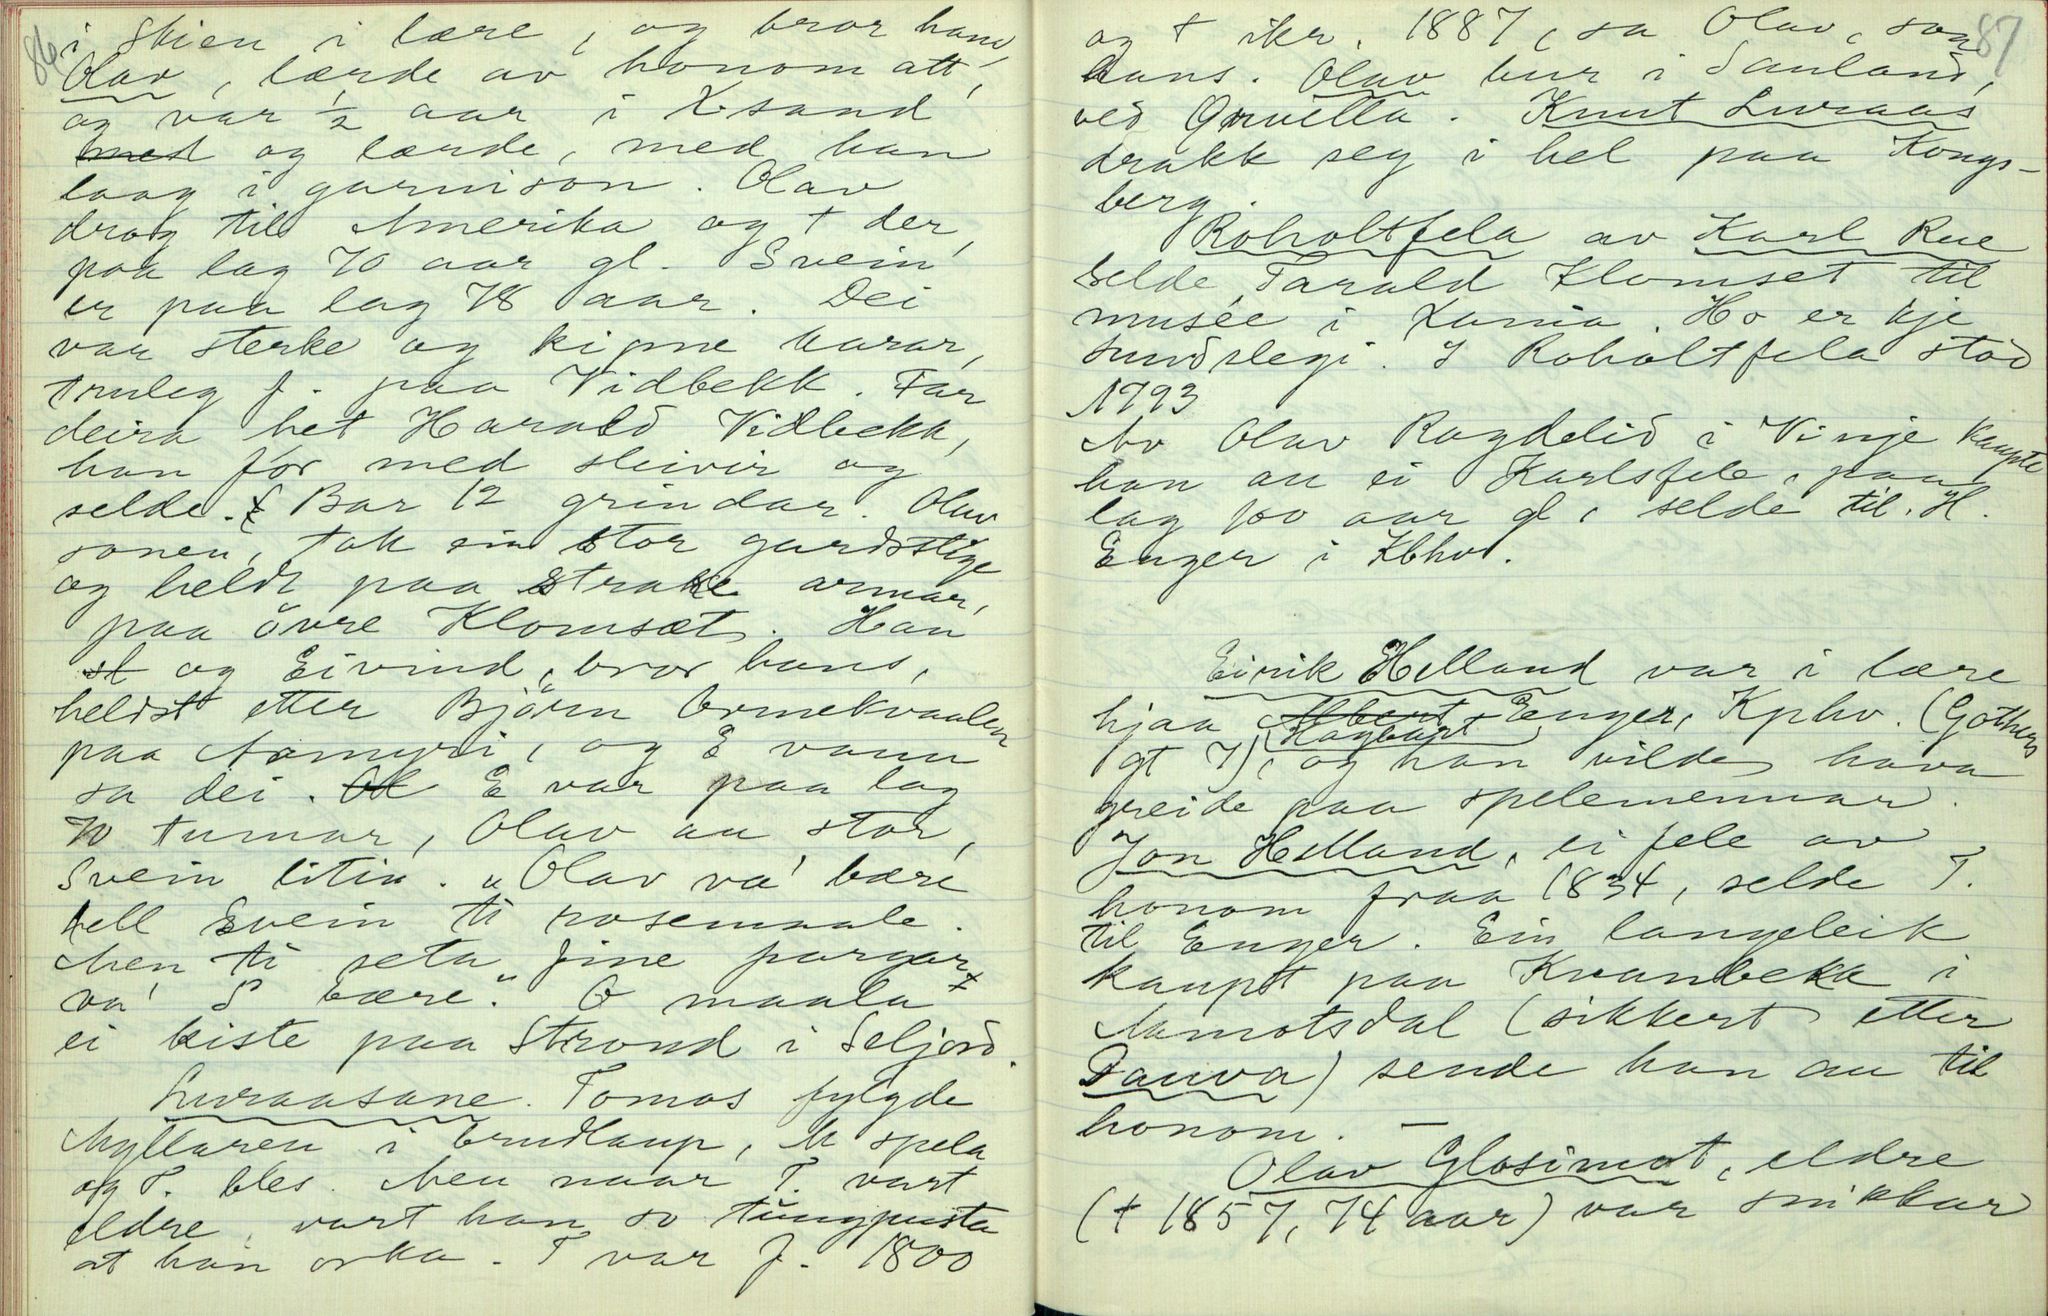 86
i Skien i lære, og bror hans,
Olav, lærde av honom att,
og var ½ aar i X.sand
med og lærde, med han
laag i garnison. Olav
drog til Amerika og † der,
paa lag 70 aar gl. Svein
er paa lag 78 aar. Dei
var sterke og kipne karar,
truleg f. paa Vidbekk. Far
deira het Harald Vidbekk,
han for med sleivir og
selde. Bar 12 grindar. Olav
sonen, tok ein stor gardsstige
og heldt paa strake armar,
paa övre Klomset. Han
og Eivind, bror hans,
heldst etter Björn Ormekvaalen
paa Aamyri, og E vann
sa dei. E var paa lag
70 tumar, Olav au stor,
Svein liten. "Olav va' bære
hell Svein ti rosemaale.
Men ti seta fine fargar
va' S bære". O maala
ei kiste paa Strond i Seljord.
Luraasane. Tomas fylgde
Myllaren i brudlaup, M spela
og T. bles. Men naar T. vart
eldre, vart han so tungpusta
at han orka. T var f. 1800
87
og † ikr. 1887, sa Olav, son
hans. Olav bur i Sauland,
ved Örvella. Knut Luraas
drakk seg i hel paa Kongs-
berg.
Roholtfela av Karl Rue
selde Tarald Klomset til
musée i Xania. Ho er kje
sundslegi. I Roholtfela stod
1793
Av Olav Ragdelid i Vinje kaupte
han au ei Karlsfele, paa
lag 100 aar gl, selde til H.
Enger i Kbhv.
Eirik Helland var i lære
hjaa Albert Enger, Kphv. (Gothers
Hagbart
gt 7), og han vilde hava
greide paa spelemennar.
Jon Helland, ei fele av
honom fraa 1834, selde T.
til Enger. Ein langeleik
kaupt paa Kvanbekk i
Aamotsdal (sikkert etter
Dauva) sende han au til
honom. —
Olav Glosimot, eldre
(† 1857, 74 aar) var snikkar